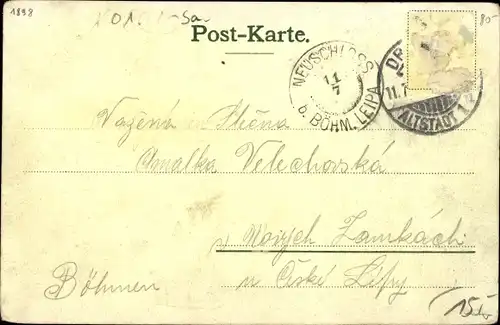 1898
80-
Post-Karte.
NEUSCHLOSS
11
7
b. BÖHM. LEIPA
DR
11.7
ALTSTADT
Vážená Slečna
Amalka Velechovská
v Nových Zamkách
u České Lípy
Böhmen